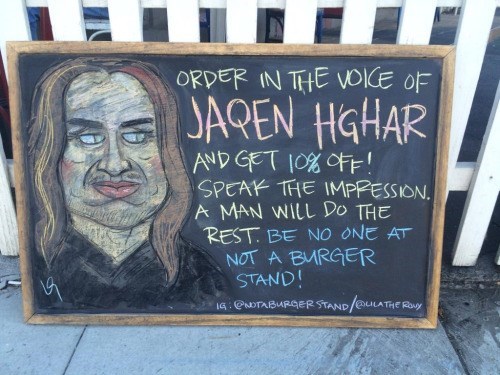 ORDER IN THE VOICE OF
JAQEN HGHAR
AND GET 10% OFF!
SPEAK THE IMPRESSION.
A MAN WILL DO THE
REST. BE NO ONE AT
NOT A BURGER
STAND!
IG: @NOTABURGERSTAND/@LILATHEROUX